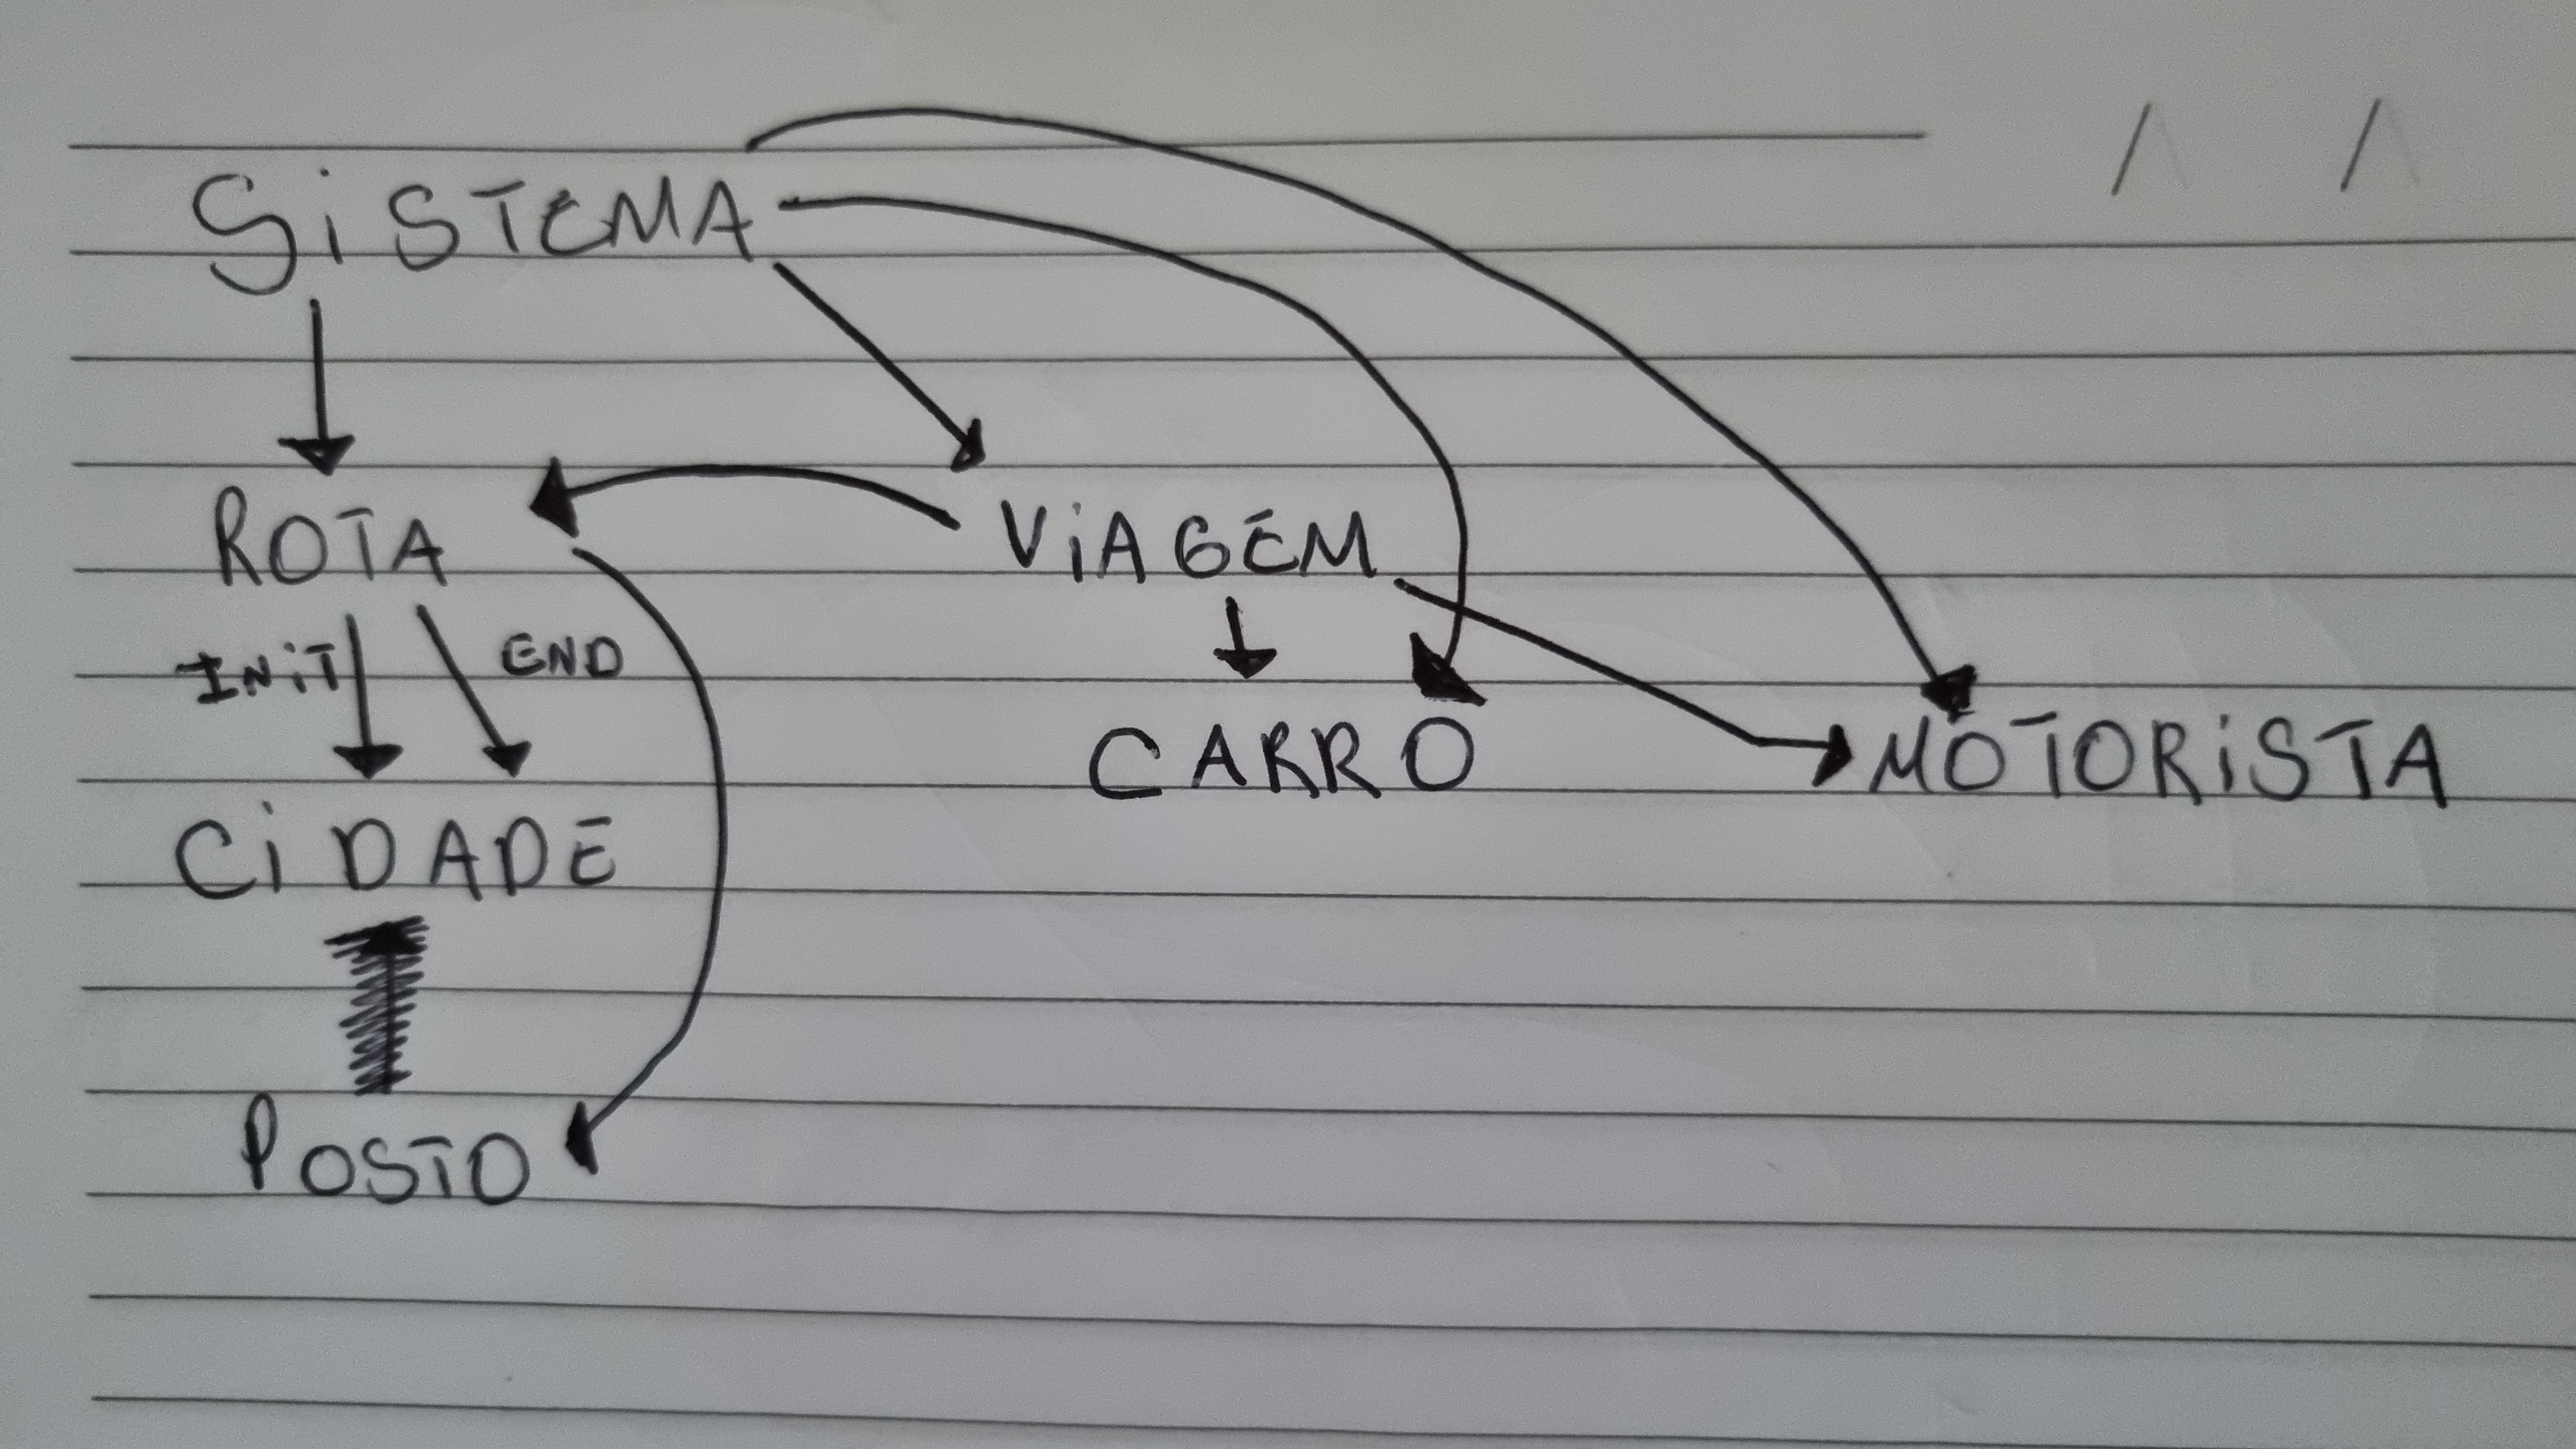 SiSTEMA
ROTA
ViAGEM
INiT
END
CARRO
MOTORiSTA
CiDADE
POSTO